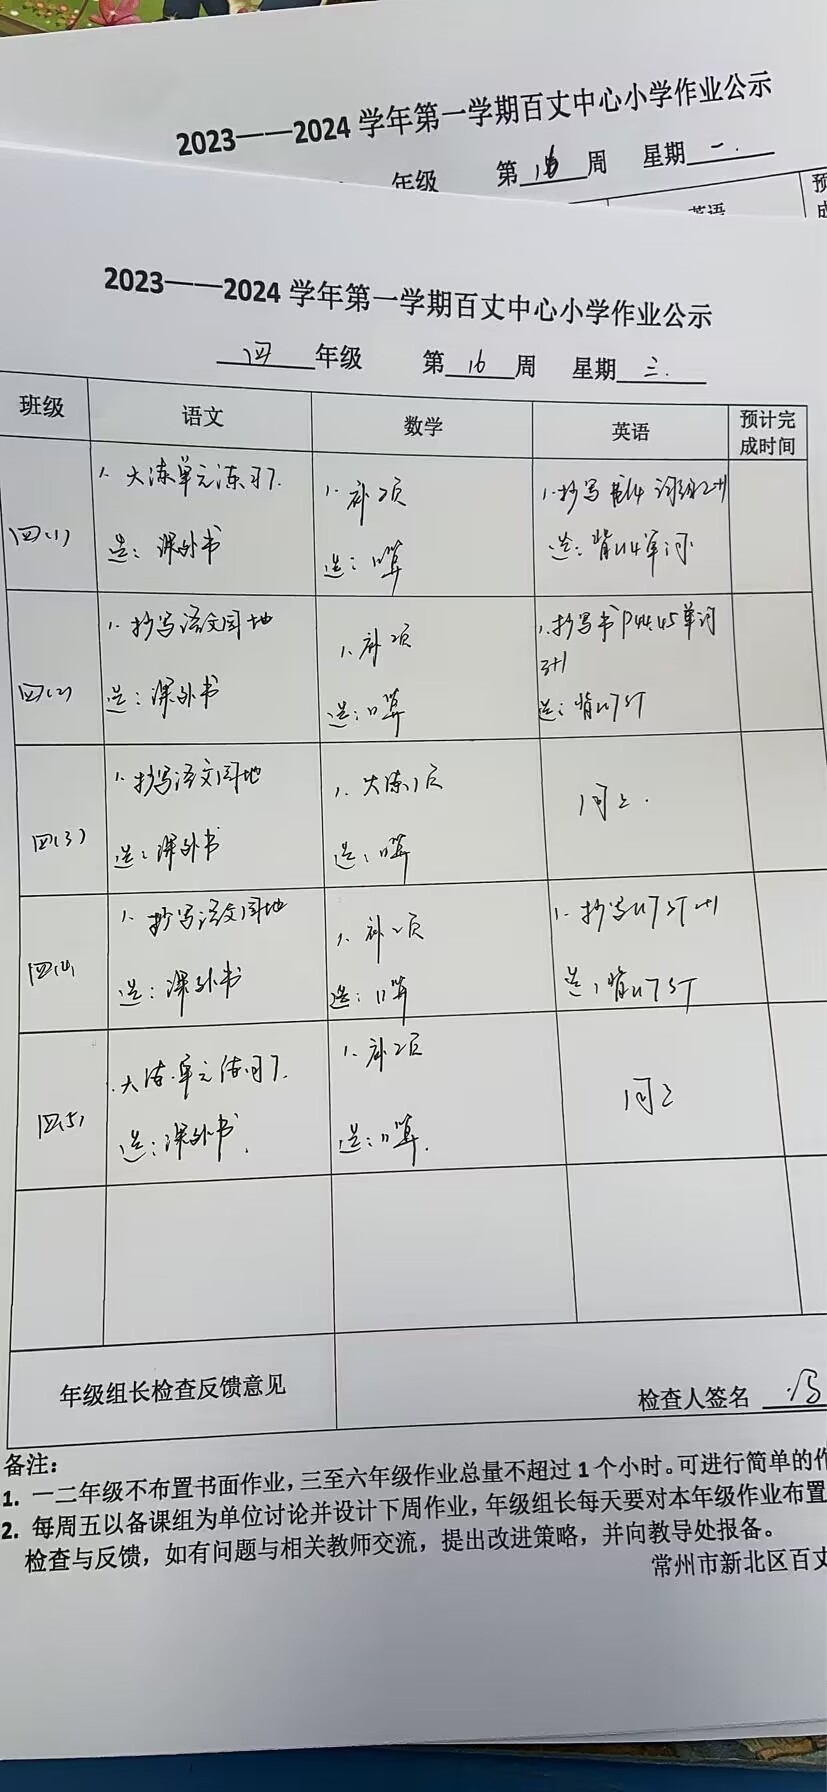 2023——2024 学年第一学期百丈中心小学作业公示
年级 第 16 周 星期 二.
英语 预
成
2023——2024 学年第一学期百丈中心小学作业公示
四 年级 第 16 周 星期 三.
班级 语文 数学 英语 预计完成时间
四(1)
1. 大练单元练习7.
选：课外书
1. 补2页
选：口算
1.抄写
选：背U4单词
四(2)
1. 抄写语文园地
选：课外书
1. 补2页
选：口算
1.抄写书P44.45单词
3+1
选：背U7 ST
四(3)
1. 抄写语文园地
选：课外书
1. 大练1页
选：口算
同上.
四(4)
1. 抄写语文园地
选：课外书
1. 补2页
选：口算
1. 抄写U7 ST
选：背U7 ST
四(5)
大练单元练习7.
选：课外书.
1. 补2页
选：口算.
同上
年级组长检查反馈意见
检查人签名
备注：
1. 一二年级不布置书面作业，三至六年级作业总量不超过 1 个小时。可进行简单的作
2. 每周五以备课组为单位讨论并设计下周作业，年级组长每天要对本年级作业布置
检查与反馈，如有问题与相关教师交流，提出改进策略，并向教导处报备。
常州市新北区百丈